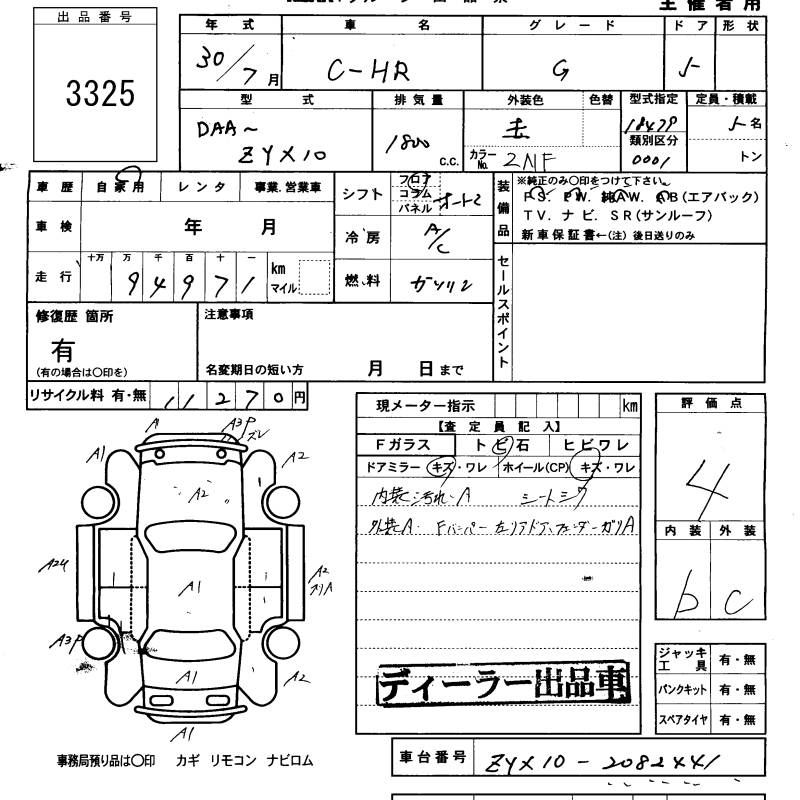 主催者用
出品番号
3325
年式 車名 グレード ドア 形状
30/7月 C-HR G 5
型式 排気量 外装色 色替 型式指定 定員・積載
DAA~ ZYX10 1800 c.c. カラーNo. 2NF 18479 5名
類別区分 0001 トン
車歴 自家用 レンタ 事業.営業車
シフト フロア コラム パネル オート
装備品 ※純正のみ○印をつけて下さい。
PS. PW. 純AW. AB(エアバック)
TV. ナビ. SR(サンルーフ)
新車保証書←(注)後日送りのみ
車検 年 月
冷房 A/C
走行 十万 万 千 百 十 一
94971 km マイル
燃料 ガソリン
セールスポイント
修復歴 箇所
有
(有の場合は○印を)
注意事項
名変期日の短い方 月 日まで
リサイクル料 有・無 11270円
現メーター指示 km
【査定員記入】
Fガラス トビ石 ヒビワレ
ドアミラー キズ・ワレ ホイール(CP) キズ・ワレ
内装 汚れ A シートシワ
外装A Fバンパー 左リアドア フェンダー ガリA
評価点
4
内装 外装
b c
A A3P ズレ
A1 A2
A2
A24 A1 A2
A3P
A1 A2
A1
ジャッキ工具 有・無
パンクキット 有・無
スペアタイヤ 有・無
ディーラー出品車
事務局預り品は○印 カギ リモコン ナビロム
車台番号 ZYX10-2082441